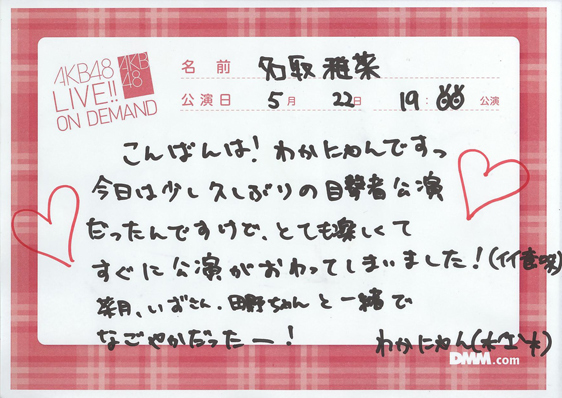 AKB48
LIVE!!
ON DEMAND
AKB
48
名前 名取稚菜
公演日 5月 22日 19:00 公演
こんばんは！わかにゃんですっ
今日は少し久しぶりの目撃者公演
だったんですけど、とても楽しくて
すぐに公演がおわってしまいました！(イイ意味)
菜月、いずさん、田野ちゃんと一緒で
なごやかだったー！
わかにゃん(*´ｪ`*)
DMM.com